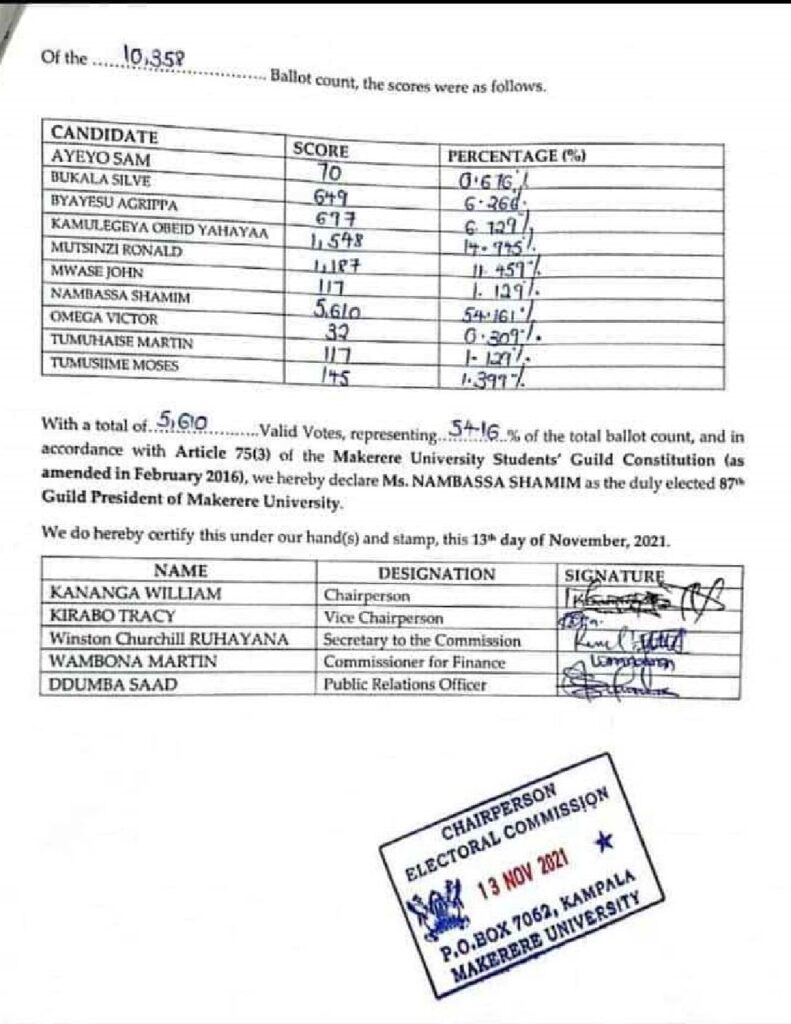 Of the ......10,358...................... Ballot count, the scores were as follows.
CANDIDATE SCORE PERCENTAGE (%)
AYEYO SAM 70 0.676%
BUKALA SILVE 649 6.266.
BYAYESU AGRIPPA 697 6.729%
KAMULEGEYA OBEID YAHAYAA 1,548 14.945%
MUTSINZI RONALD 1,187 11.459%
MWASE JOHN 117 1.129%
NAMBASSA SHAMIM 5,610 54.161%
OMEGA VICTOR 32 0.309%
TUMUHAISE MARTIN 117 1.129%
TUMUSIIME MOSES 145 1.399%
With a total of..5,610............Valid Votes, representing..54.16..% of the total ballot count, and in
accordance with Article 75(3) of the Makerere University Students' Guild Constitution (as
amended in February 2016), we hereby declare Ms. NAMBASSA SHAMIM as the duly elected 87th
Guild President of Makerere University.
We do hereby certify this under our hand(s) and stamp, this 13th day of November, 2021.
NAME DESIGNATION SIGNATURE
KANANGA WILLIAM Chairperson
KIRABO TRACY Vice Chairperson
Winston Churchill RUHAYANA Secretary to the Commission
WAMBONA MARTIN Commissioner for Finance
DDUMBA SAAD Public Relations Officer
CHAIRPERSON
ELECTORAL COMMISSION
13 NOV 2021
P.O.BOX 7062, KAMPALA
MAKERERE UNIVERSITY